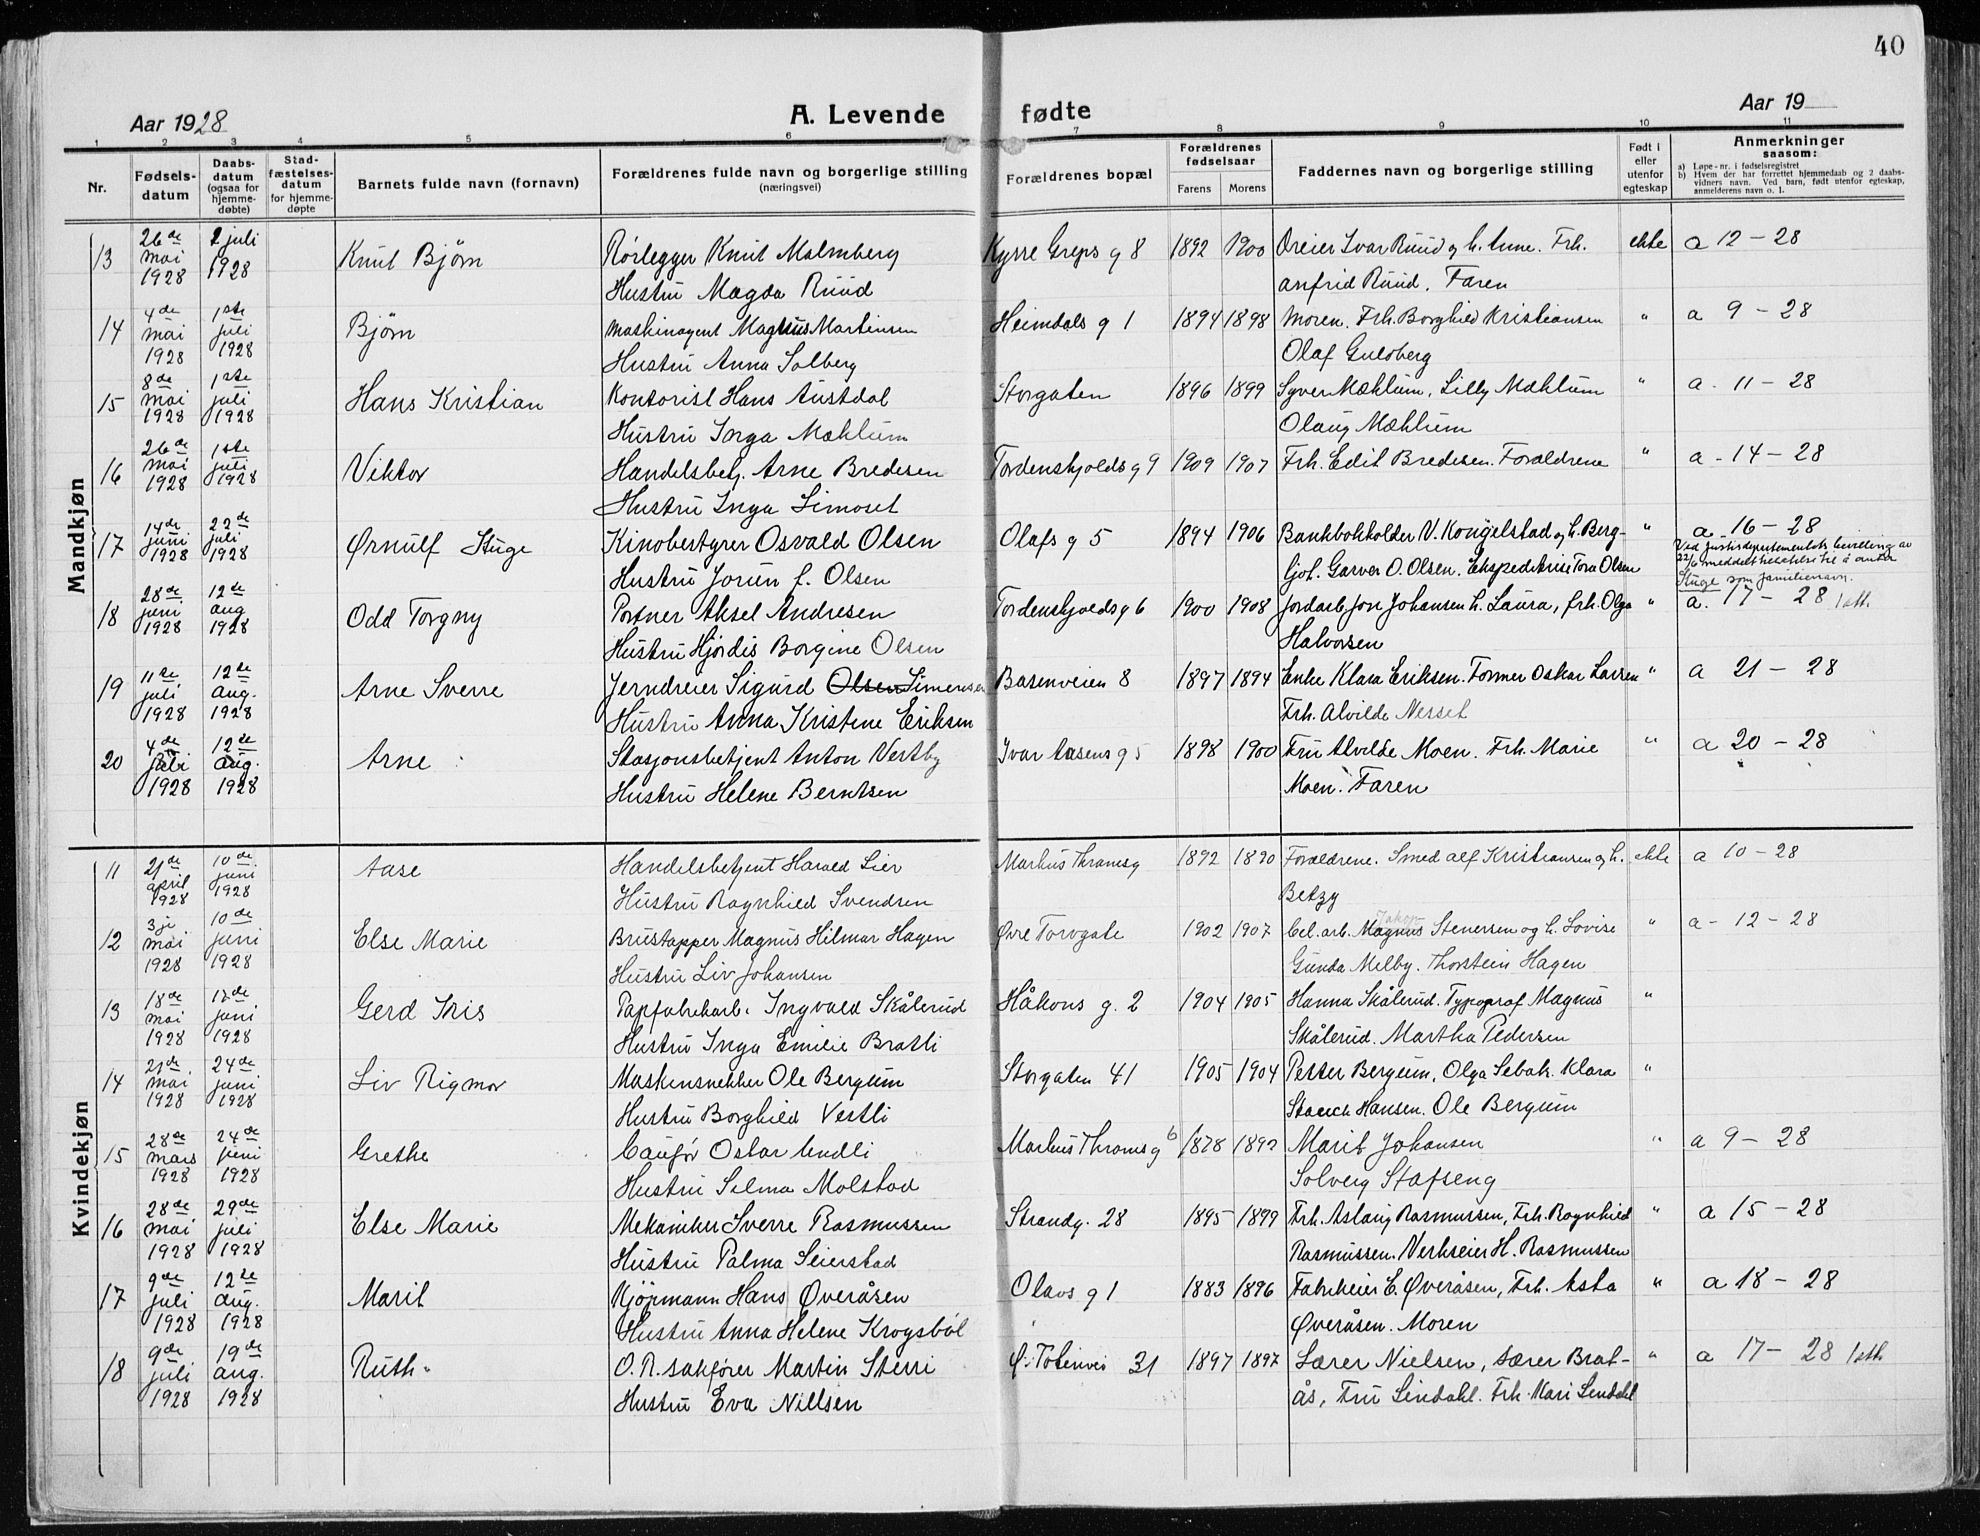 40
Aar 1928
A. Levende fødte
Aar 19
1 2 3 4 5 6 7 8 9 10 11
Nr.
Fødsels-
datum
Daabs-
datum
(ogsaa for
hjemme-
døbte)
Stad-
fæstelses-
datum
for hjemme-
døpte
Barnets fulde navn (fornavn)
Forældrenes fulde navn og borgerlige stilling
(næringsvei)
Forældrenes bopæl
Forældrenes
fødselsaar
Farens Morens
Faddernes navn og borgerlige stilling
Født i
eller
utenfor
egteskap
Anmerkninger
saasom:
a) Løpe-nr. i fødselsregistret
b) Hvem der har forrettet hjemmedaab og 2 daabs-
vidners navn. Ved barn, født utenfor egteskap,
anmelderens navn o. l.
Mandkjøn
13 26de mai 1928 2 juli 1928 Knut Bjørn Rørlegger Knut Malmberg Kyrre Greps g 8 1892 1900 Dreier Ivar Ruud og h. Anne. Frh. ekte a 12 - 28
Hustru Magda Ruud Anfrid Ruud. Faren
14 4de mai 1928 1ste juli 1928 Bjørn Maskinagent Magnus Martinsen Heimdals g 1 1894 1898 Moren. Frh. Borghild Kristiansen " a 9 - 28
Hustru Anna Solberg Olaf Gulsberg
15 8de mai 1928 1ste juli 1928 Hans Kristian Kontorist Hans Austdal Storgaten 1896 1899 Syver Mæhlum, Lilly Mæhlum " a. 11 - 28
Hustru Inga Mæhlum Olaug Mæhlum
16 26de mai 1928 1ste juli 1928 Viktor Handelsbetj. Arne Bredesen Tordenskjolds g 9 1909 1907 Frh. Edit Bredesen. Forældrene " a - 14 - 28
Hustru Inga Simoset
17 14de juni 1928 22de juli 1928 Ørnulf Stuge Kinobestyrer Osvald Olsen Olafs g 5 1894 1906 Bankbokholder V. Kongelstad og h. Berg- " a. 16 - 28
Hustru Jorun f. Olsen ljot. Garver O. Olsen. Ekspeditrise Tora Olsen
Ved justisdepartementets bevilling av
22/6 meddelt tillatelse til å anta
Stuge som familienavn.
18 28de juni 1928 12te aug 1928 Odd Torgny Portner Aksel Andresen Tordenskjolds g 6 1900 1908 Jordarb. Jon Johansen h. Laura, frh. Olga " a. 17 - 28 1 att.
Hustru Hjørdis Borgine Olsen Halvorsen
19 11te juli 1928 12te aug. 1928 Arne Sverre Jerndreier Sigurd Olsen Simensen Basenveien 8 1897 1894 Enke Klara Eriksen. Former Oskar Larsen " a 21 - 28
Hustru Anna Kristine Eriksen Frh. Alvilde Nesset
20 4de juli 1928 12te aug. 1928 Arne Stasjonsbetjent Anton Vestby Ivar Aasens g 5 1898 1900 Fru Alvilde Moen. Frh. Marie " a 20 - 28
Hustru Helene Berntsen Moen. Faren
Kvindekjøn
11 21de april 1928 10de juni 1928 Aase Handelsbetjent Harald Lier Markus Thranes g 1892 1890 Forældrene. Smed Alf Kristiansen og h. ekte a 10 - 28
Hustru Ragnhild Svendsen Betzy
12 3je mai 1928 10de juni 1928 Else Marie Brustapper Magnus Hilmar Hagen Øvre Torvgate 1902 1907 Cel. arb. Magnus Stenersen og h. Lovise " a - 12 - 28
Hustru Liv Johansen Gunda Melby. Thorstein Hagen
13 18de mai 1928 17de juni 1928 Gerd Iris Papfabrikarb. Ingvald Skålerud Håkons g. 2 1904 1905 Hanna Skålerud. Typograf Magnus "
Hustru Inga Emilie Bratli Skålerud. Martha Pedersen
14 21de mai 1928 24de juni 1928 Liv Rigmor Maskinsnekker Ole Bergum Storgaten 41 1905 1904 Petter Bergum, Olga Sebak. Klara "
Hustru Borghild Vestli Hansen. Ole Bergum
15 28de mars 1928 24de juni 1928 Grethe Oskar Lundli Markus Thranes g 6 1878 1892 Marit Johansen " a 9 - 28
Hustru Selma Molstad Solveig Stafseng
16 28de mai 1928 29de juli 1928 Else Marie Mekaniker Sverre Rasmussen Strandg. 28 1895 1899 Frh. Aslaug Rasmussen, Frh. Ragnhild " a 15 - 28
Hustru Palma Seierstad Rasmussen. Verkseier H. Rasmussen
17 9de juli 1928 12te aug. 1928 Marit Kjøpmann Hans Øveråsen Olavs g 1 1883 1896 Fabrikeier E. Øveråsen, Frh. Asta " a 18 - 28
Hustru Anna Helene Krogsbøl Øveråsen. Moren
18 9de juli 1928 19de aug. 1928 Ruth O.R. sakfører Martin Sterri Ø. Totenvei 31 1897 1897 Lærer Nielsen, Lærer Brat- " a 17 - 28 1 att.
Hustru Eva Nillsen ås, Fru Lindahl. Frh. Kari Lindahl